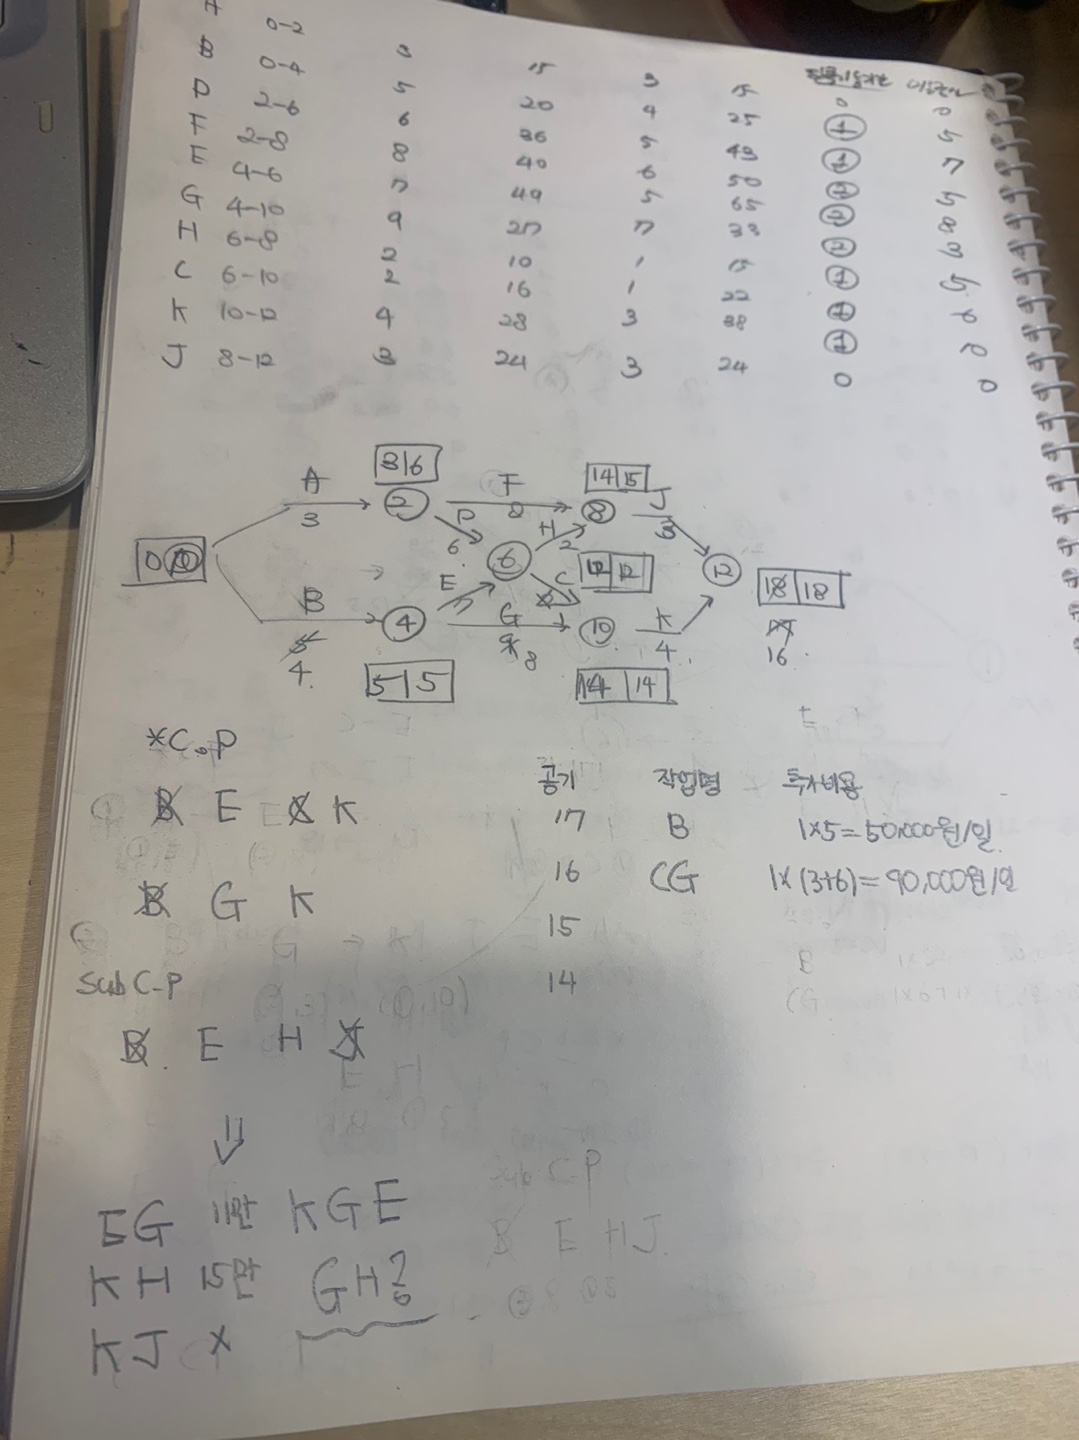 A 0-2 3 15 3 15 0 0
B 0-4 5 20 4 25 1 5
D 2-6 6 36 5 43 1 7
F 2-8 8 40 6 50 2 5
E 4-6 7 49 5 65 2 8
G 4-10 9 27 7 33 2 3
H 6-8 2 10 1 15 1 5
C 6-10 2 16 1 22 1 6
K 10-12 4 28 3 38 1 10
J 8-12 3 24 3 24 0 0
3 6
14 15
A F J
3 2 D 8 H 8 3
0 6 6 2 12 12 12
E C 18 18
B 7 1 16
4 G K
4 8 10 4
5 5
14 14
*C.P
B E C K
B G K
공기 작업명 투자비용
17 B 1x5=50,000원/일
16 CG 1x(3+6)=90,000원/일
15
14
Sub C-P
B E H J
⇓
EG 11만 KGE
KH 15만 GH?
KJ X